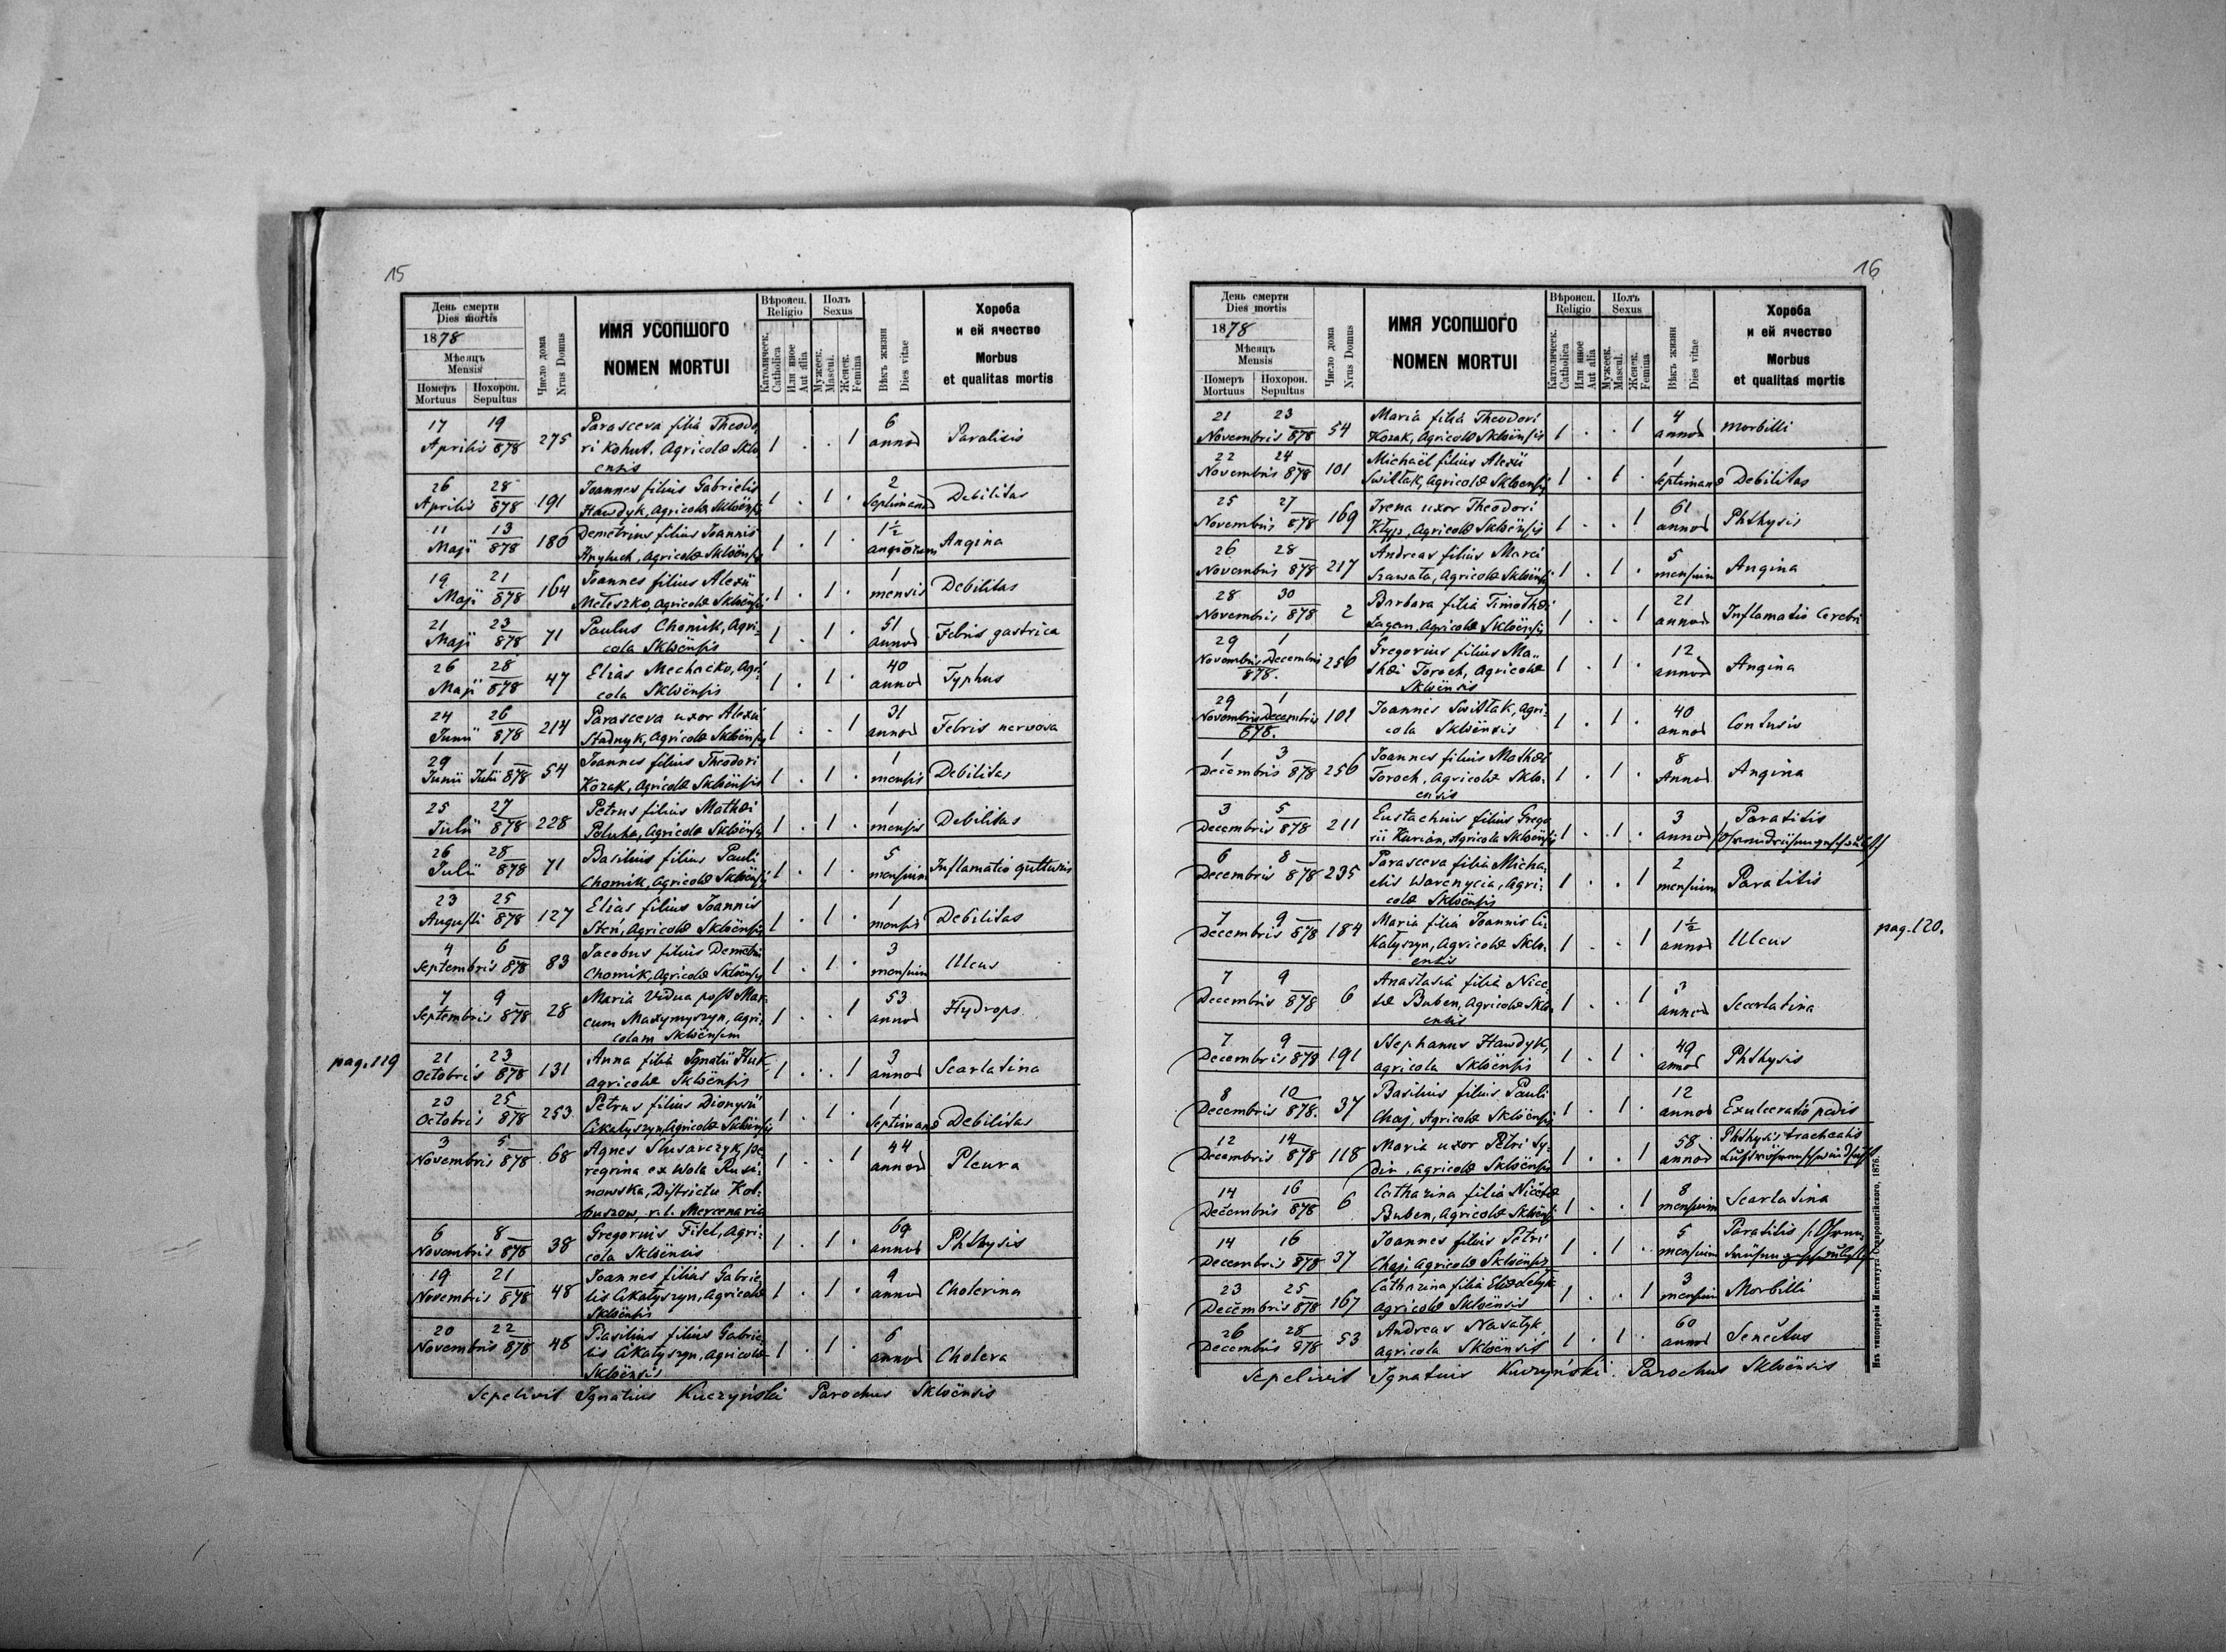 15
День смерти
Dies mortis
1878
Мѣсяць
Mensis
Номеръ Mortuus
Похорон. Sepultus
Число дома
Nrus Domus
ИМЯ УСОПШОГО
NOMEN MORTUI
Вѣроисп.
Religio
Католическ.
Catholica
Или иное
Aut alia
Полъ
Sexus
Мужеск.
Mascul.
Женск.
Femina
Вѣкъ жизни
Dies vitae
Хороба
и ей ячество
Morbus
et qualitas mortis
17 19 Aprilis 878 275 Parasceva filia Theodo
ri Kohut, Agricolæ Sklo
ensis 1 . . 1 6 annor Paralisis
26 28 Aprilis 878 191 Joannes filius Gabrielis
Hawdyk, Agricolæ Skloënsis 1 . 1 . 2 Septimanar Debilitas
11 13 Maji 878 186 Demetrius filius Joannis
Hnyluch, Agricolæ Skloënsis 1 . 1 . 1½ Angina
19 21 Maji 878 164 Joannes filius Alexii
Meleszko, Agricolæ Skloënsis 1 . 1 . 1 mensis Debilitas
21 23 Maji 878 71 Paulus Chomik, Agri:
cola Skloënsis 1 . 1 . 51 annor Febris gastrica
26 28 Maji 878 47 Elias Mechaćko, Agri:
cola Skloënsis 1 . 1 . 40 annor Typhus
24 26 Junii 878 214 Parasceva uxor Alexii
Stadnyk, Agricolæ Skloënsis 1 . . 1 31 annor Febris nervosa
29 1 Junii Julii 878 54 Joannes filius Theodori
Kozak, Agricolæ Skloënsis 1 . 1 . 1 mensis Debilitas
25 27 Julii 878 228 Petrus filius Mathæi
Poluha, Agricolæ Skloënsis 1 . 1 . 1 mensis Debilitas
26 28 Julii 878 71 Basilius filius Pauli
Chomik, Agricolæ Skloënsis 1 . 1 . 5 mensium Inflamatio gutturis
23 25 Augusti 878 127 Elias filius Joannis
Steń, Agricolæ Skloënsis 1 . 1 . 1 mensis Debilitas
4 6 Septembris 878 83 Jacobus filius Demetrii
Chomik, Agricolæ Skloënsis 1 . 1 . 3 mensium Ulcus
7 9 Septembris 878 28 Maria Vidua post Mar:
cum Maxymyszyn, Agri:
colam Skloënsem 1 . . 1 53 annor Hydrops
pag. 119
21 23 Octobris 878 131 Anna filia Ignatii Huk
agricolæ Skloënsis 1 . . 1 3 annor Scarlatina
23 25 Octobris 878 253 Petrus filius Dionysii
Cikalyszyn, Agricolæ Skloënsis 1 . 1 . 1 Septimanæ Debilitas
3 5 Novembris 878 68 Agnes Slusarczyk, pe:
regrina ex Wola Rusi:
nowska, Districtu Kol:
buszow, r. l. Mercenaria 1 . . 1 44 annor Pleura
6 8 Novembris 878 38 Gregorius Fitel, Agri:
cola Skloënsis 1 . 1 . 69 annor Phthysis
19 21 Novembris 878 48 Joannes filius Gabrie:
lis Cikalyszyn, Agricolæ
Skloënsis 1 . 1 . 9 annor Cholerina
20 22 Novembris 878 48 Basilius filius Gabrie:
lis Cikalyszyn, Agricolæ
Skloënsis 1 . 1 . 6 annor Cholera
Sepelivit Ignatius Kuczyński Parochus Skloënsis
16
День смерти
Dies mortis
1878
Мѣсяць
Mensis
Номеръ Mortuus
Похорон. Sepultus
Число дома
Nrus Domus
ИМЯ УСОПШОГО
NOMEN MORTUI
Вѣроисп.
Religio
Католическ.
Catholica
Или иное
Aut alia
Полъ
Sexus
Мужеск.
Mascul.
Женск.
Femina
Вѣкъ жизни
Dies vitae
Хороба
и ей ячество
Morbus
et qualitas mortis
21 23 Novembris 878 54 Maria filia Theodori
Kozak, Agricolæ Skloënsis 1 . . 1 4 annor Morbilli
22 24 Novembris 878 101 Michaël filius Alexii
Switlak, Agricolæ Skloensis 1 . 1 . 1 Septimanæ Debilitas
25 27 Novembris 878 169 Irena uxor Theodori
Kłyp, Agricolæ Skloënsis 1 . . 1 61 annor Phthysis
26 28 Novembris 878 217 Andreas filius Marci
Szawała, Agricolæ Skloënsis 1 . 1 . 5 mensium Angina
28 30 Novembris 878 2 Barbara filia Timothæi
Agricolæ Skloënsis 1 . . 1 21 annor Inflamatio Cerebri
29 1 Novembris Decembris 878. 256 Gregorius filius Ma:
thæi Toroch, Agricolæ
Skloënsis 1 . 1 . 12 annor Angina
29 1 Novembris Decembris 878. 101 Joannes Switlak, Agri:
cola Skloënsis 1 . 1 . 40 annor Contusio
1 3 Decembris 878 256 Joannes filius Mathæi
Toroch, Agricolæ Sklo:
ensis 1 . 1 . 8 Annor Angina
3 5 Decembris 878 211 Eustachius filius Grego
rii Kurian, Agricolæ Skloënsis 1 . 1 . 3 annor Paratitis
6 8 Decembris 878 235 Parasceva filia Micha:
elis Warenycia, Agri:
colæ Skloënsis 1 . . 1 2 mensium Paratitis
7 9 Decembris 878 184 Maria filia Joannis Ci:
kalyszyn, Agricolæ Sklo:
ensis 1 . . 1 1½ annor Ulcus
pag. 120.
7 9 Decembris 878 6 Anastasia filia Nice:
tæ Buben, Agricolæ Sklo:
ensis 1 . . 1 3 annor Scarlatina
7 9 Decembris 878 191 Stephanus Hawdyk,
agricola Skloënsis 1 . 1 . 49 annor Phthysis
8 10 Decembris 878. 37 Basilius filius Pauli
Chaj, Agricolæ Skloënsis 1 . 1 . 12 annor Exulceratio pedis
12 14 Decembris 878 118 Maria uxor Petri Sy:
dir, agricolæ Skloënsis 1 . . 1 58 annor Phthysis trachealis
Luftröhrenschwindsucht
14 16 Decembris 878 6 Catharina filia Nicetæ
Buben, Agricolæ Skloënsis 1 . . 1 8 mensium Scarlatina
14 16 Decembris 878 37 Joannes filius Petri
Chaj, Agricolæ Skloënsis 1 . 1 . 5 mensium Paratitis
23 25 Decembris 878 167 Catharina filia Eliæ
agricolæ Skloënsis 1 . . 1 3 mensium Morbilli
26 28 Decembris 878 53 Andreas Nasalyk,
agricola Skloënsis 1 . 1 . 60 annor Senectus
Sepelivit Ignatius Kuczyński Parochus Skloënsis
Изъ типографіи Института Ставропигійского, 1876.